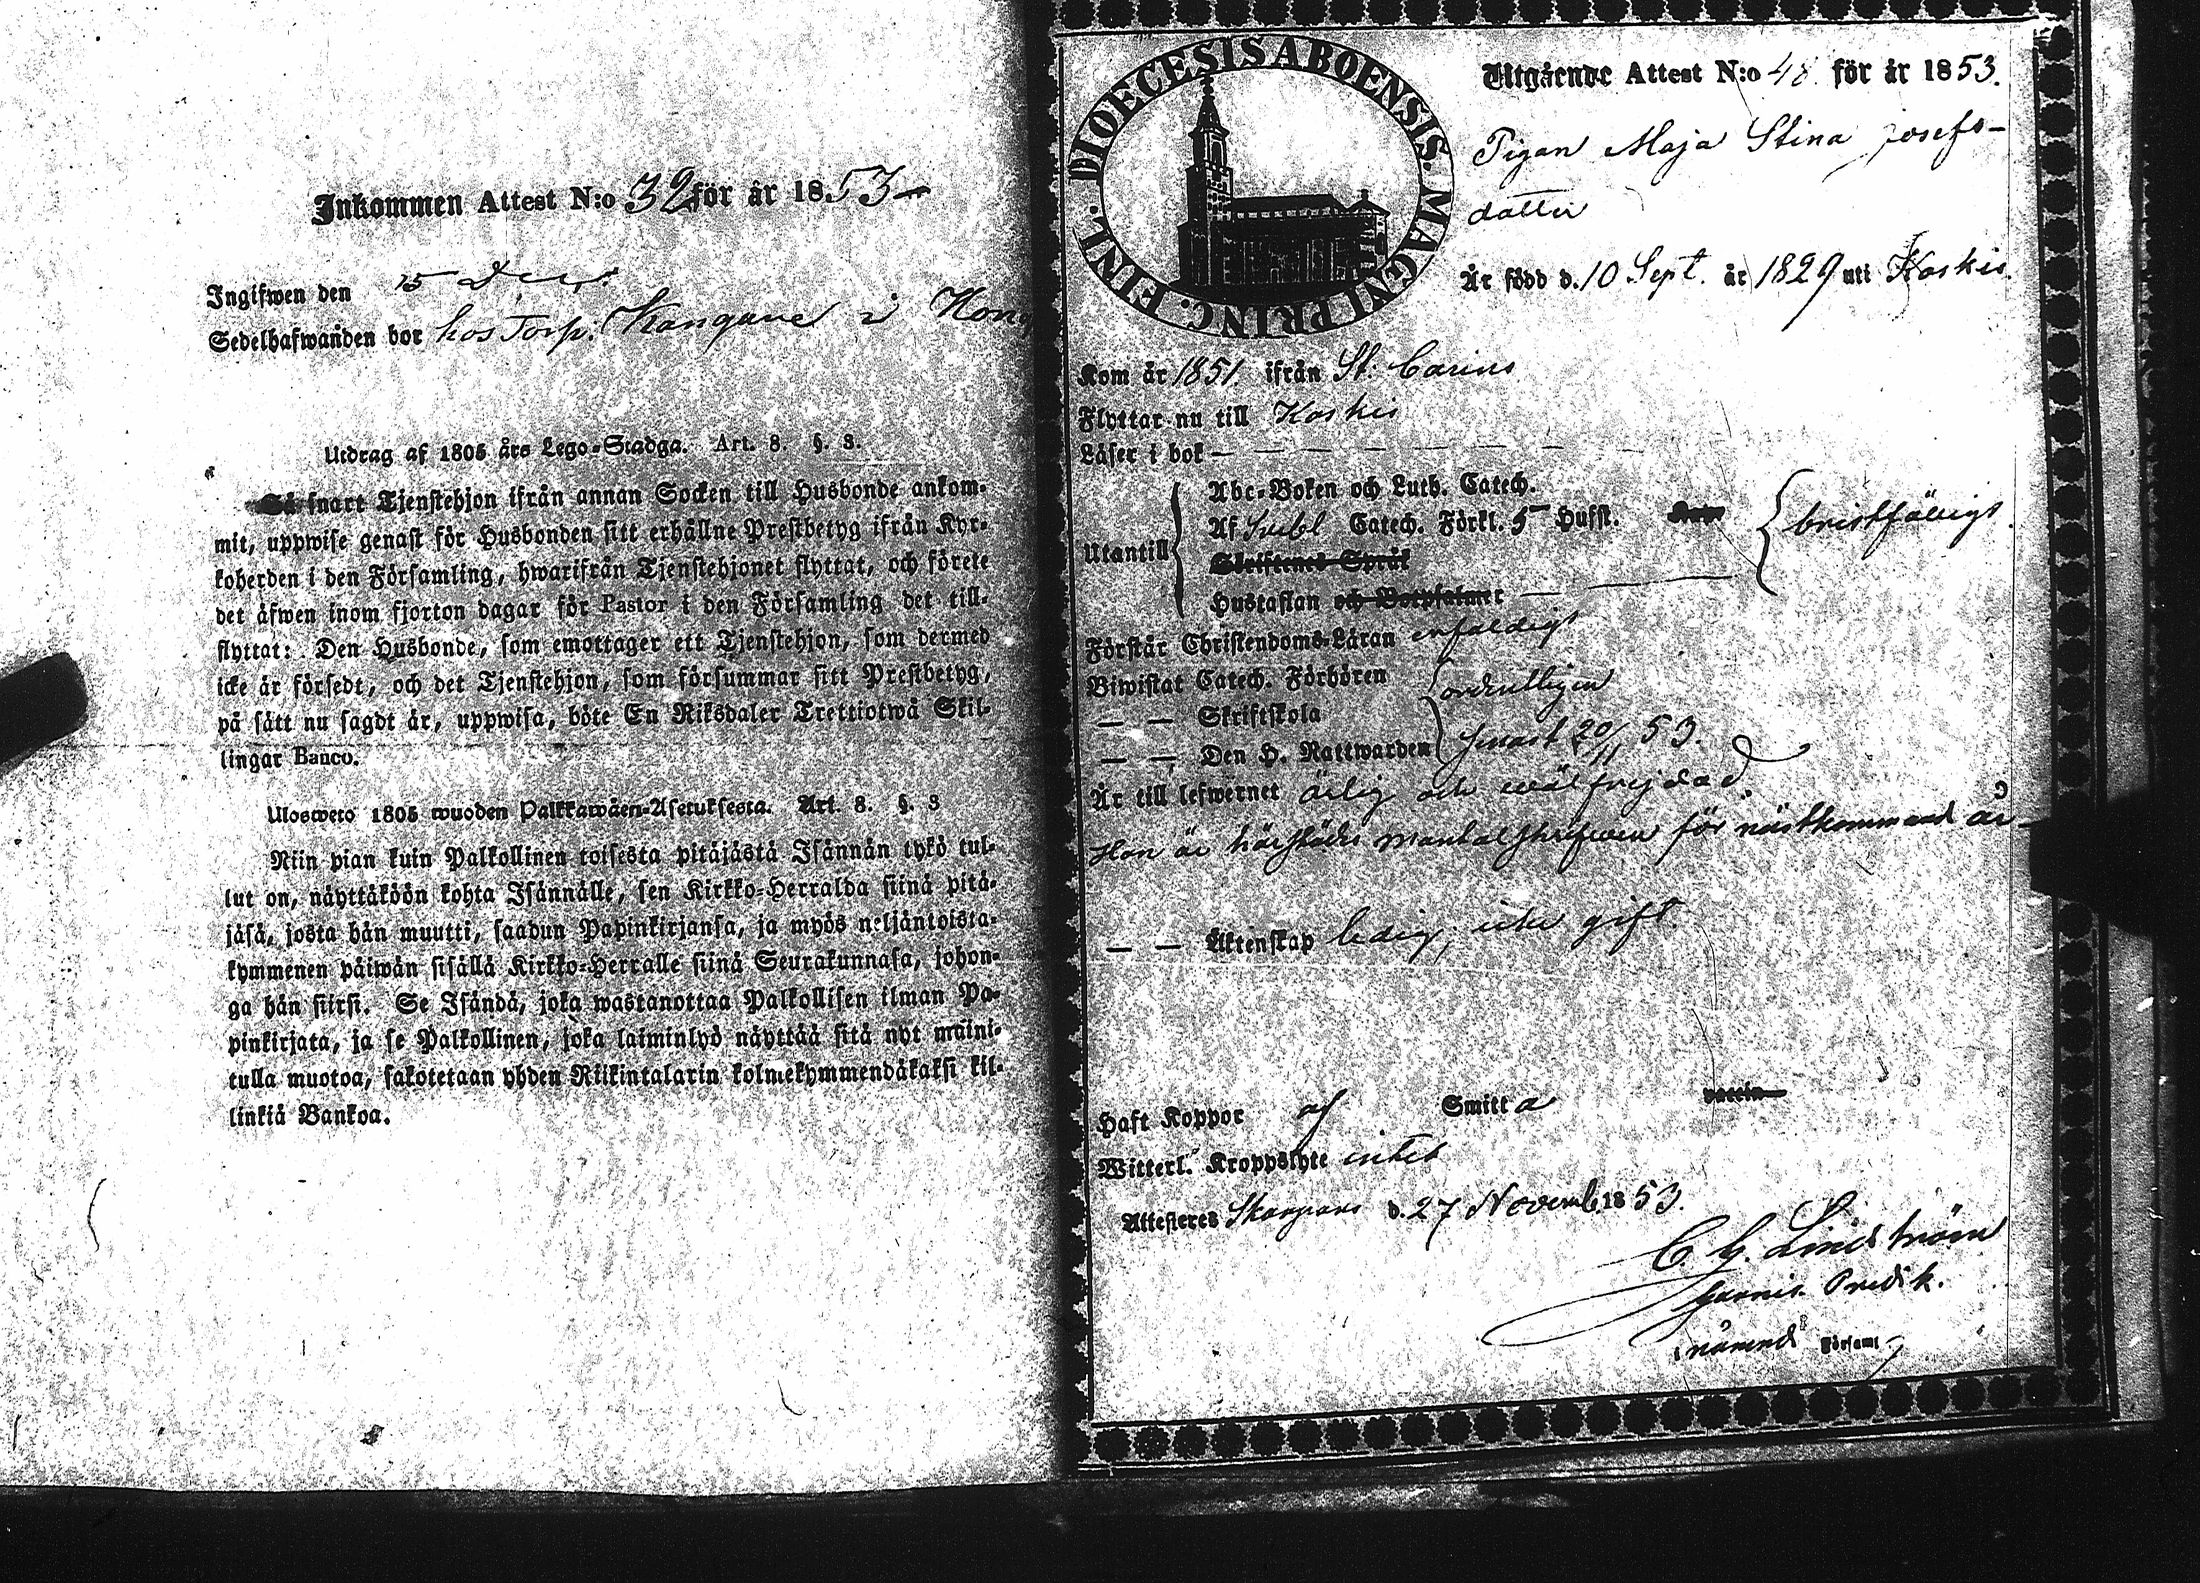 Inkommen Attest N:o 32 för år 1853
Ingifwen den 15 Dec.
Sedelhafwanden bor hos Torp. Kangare i
Utdrag af 1805 års Lego-Stadga. Art. 8. §. 3.
Så snart Tjenstehjon ifrån annan Socken till Husbonde ankom-
mit, uppwise genast för Husbonden sitt erhållne Prestbetyg ifrån Kyr-
koherden i den Församling, hwarifrån Tjenstehjonet flyttat, och förete
det äfwen inom fjorton dagar för Pastor i den Församling det till-
flyttat: Den Husbonde, som emottager ett Tjenstehjon, som dermed
icke är försedt, och det Tjenstehjon, som försummar sitt Prestbetyg,
på sätt nu sagdt är, uppwisa, böte En Riksdaler Trettiotwå Skil-
lingar Banco.
Ulosweto 1805 wuoden Palkkawäen-Asetuksesta. Art. 8. §. 3
Niin pian kuin Palkollinen toisesta pitäjästä Isännän tykö tul-
lut on, näyttäköön kohta Isännälle, sen Kirkko-Herralda siinä pitä-
jäsä, josta hän muutti, saadun Papinkirjansa, ja myös neljäntoista-
kymmenen päiwän sisällä Kirkko-Herralle siinä Seurakunnasa, johon-
ga hän siirsi. Se Isändä, joka wastanottaa Palkollisen ilman Pa-
pinkirjata, ja se Palkollinen, joka laiminlyö näyttää sitä nyt maini-
tulla muotoa, sakotetaan yhden Riikintalarin kolmekymmendäkaksi kil-
linkiä Bankoa.
DIOECESIS ABOENSIS. MAGNI PRINC. FINL.
Utgående Attest N:o 48 för år 1853.
Pigan Maja Stina Josefs-
dotter
Är född d. 10 Sept. år 1829 uti Koskis.
Kom år 1851. ifrån St: Carins
Flyttar nu till Koskis
Läser i bok — — — — — — —
Utantill
Abc-Boken och Luth. Catech.
Af Svebl Catech. Förkl. 5 Hufst.
Skriftenes Språk
Hustaflan och Botpsalmer —
bristfälligt
Förstår Christendoms-Läran enfaldigt
Biwistat Catech. Förhören
— — Skriftskola
ordentligen
— — Den H. Nattwarden senast 20/11 53.
Är till lefwernet ärlig och wälfrejdad.
Hon är härstädes mantalskrifwen för nästkommand år
— — Äktenskap ledig, icke gift.
Haft Koppor af Smitta vaccin
Witterl. Kroppslyte intet
Attesteres Skarpans d. 27 Novemb. 1853.
C. G. Lindström
Garnis. Predik.
nämnd Församl